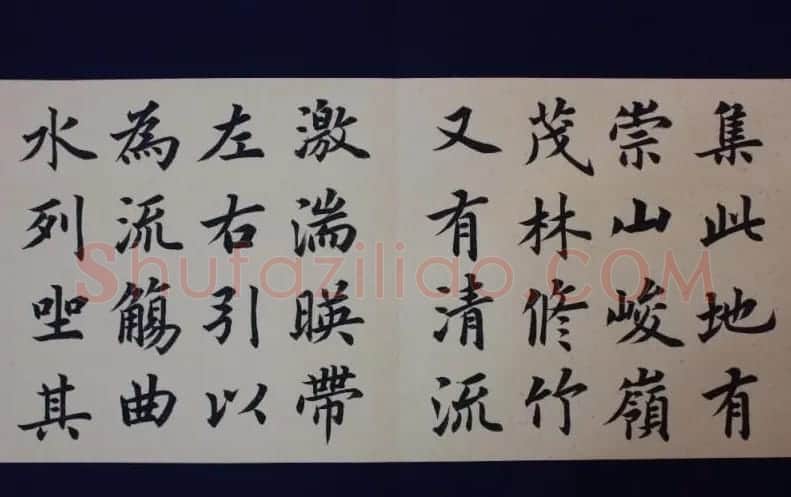 集此地有
崇山峻嶺
茂林修竹
又有清流
激湍暎帶
左右引以
為流觴曲
水列坐其
Shufaziliao.COM